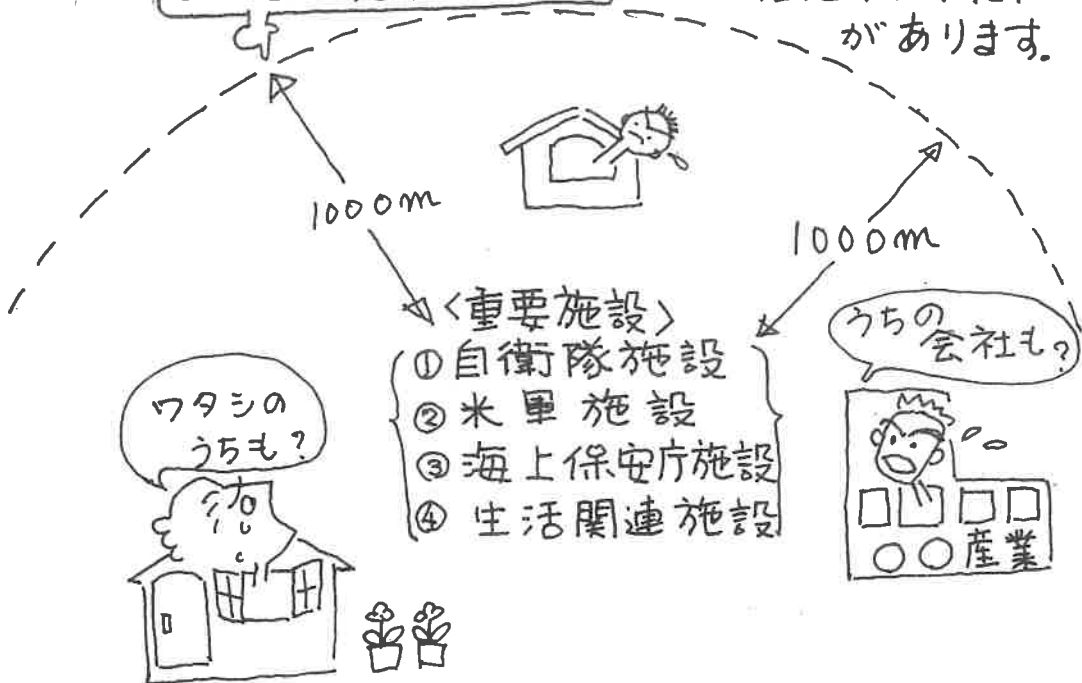 があります.
1000m
1000m
〈重要施設〉
①自衛隊施設
②米軍施設
③海上保安庁施設
④生活関連施設
うちの
会社も?
ワタシの
うちも?
○○産業